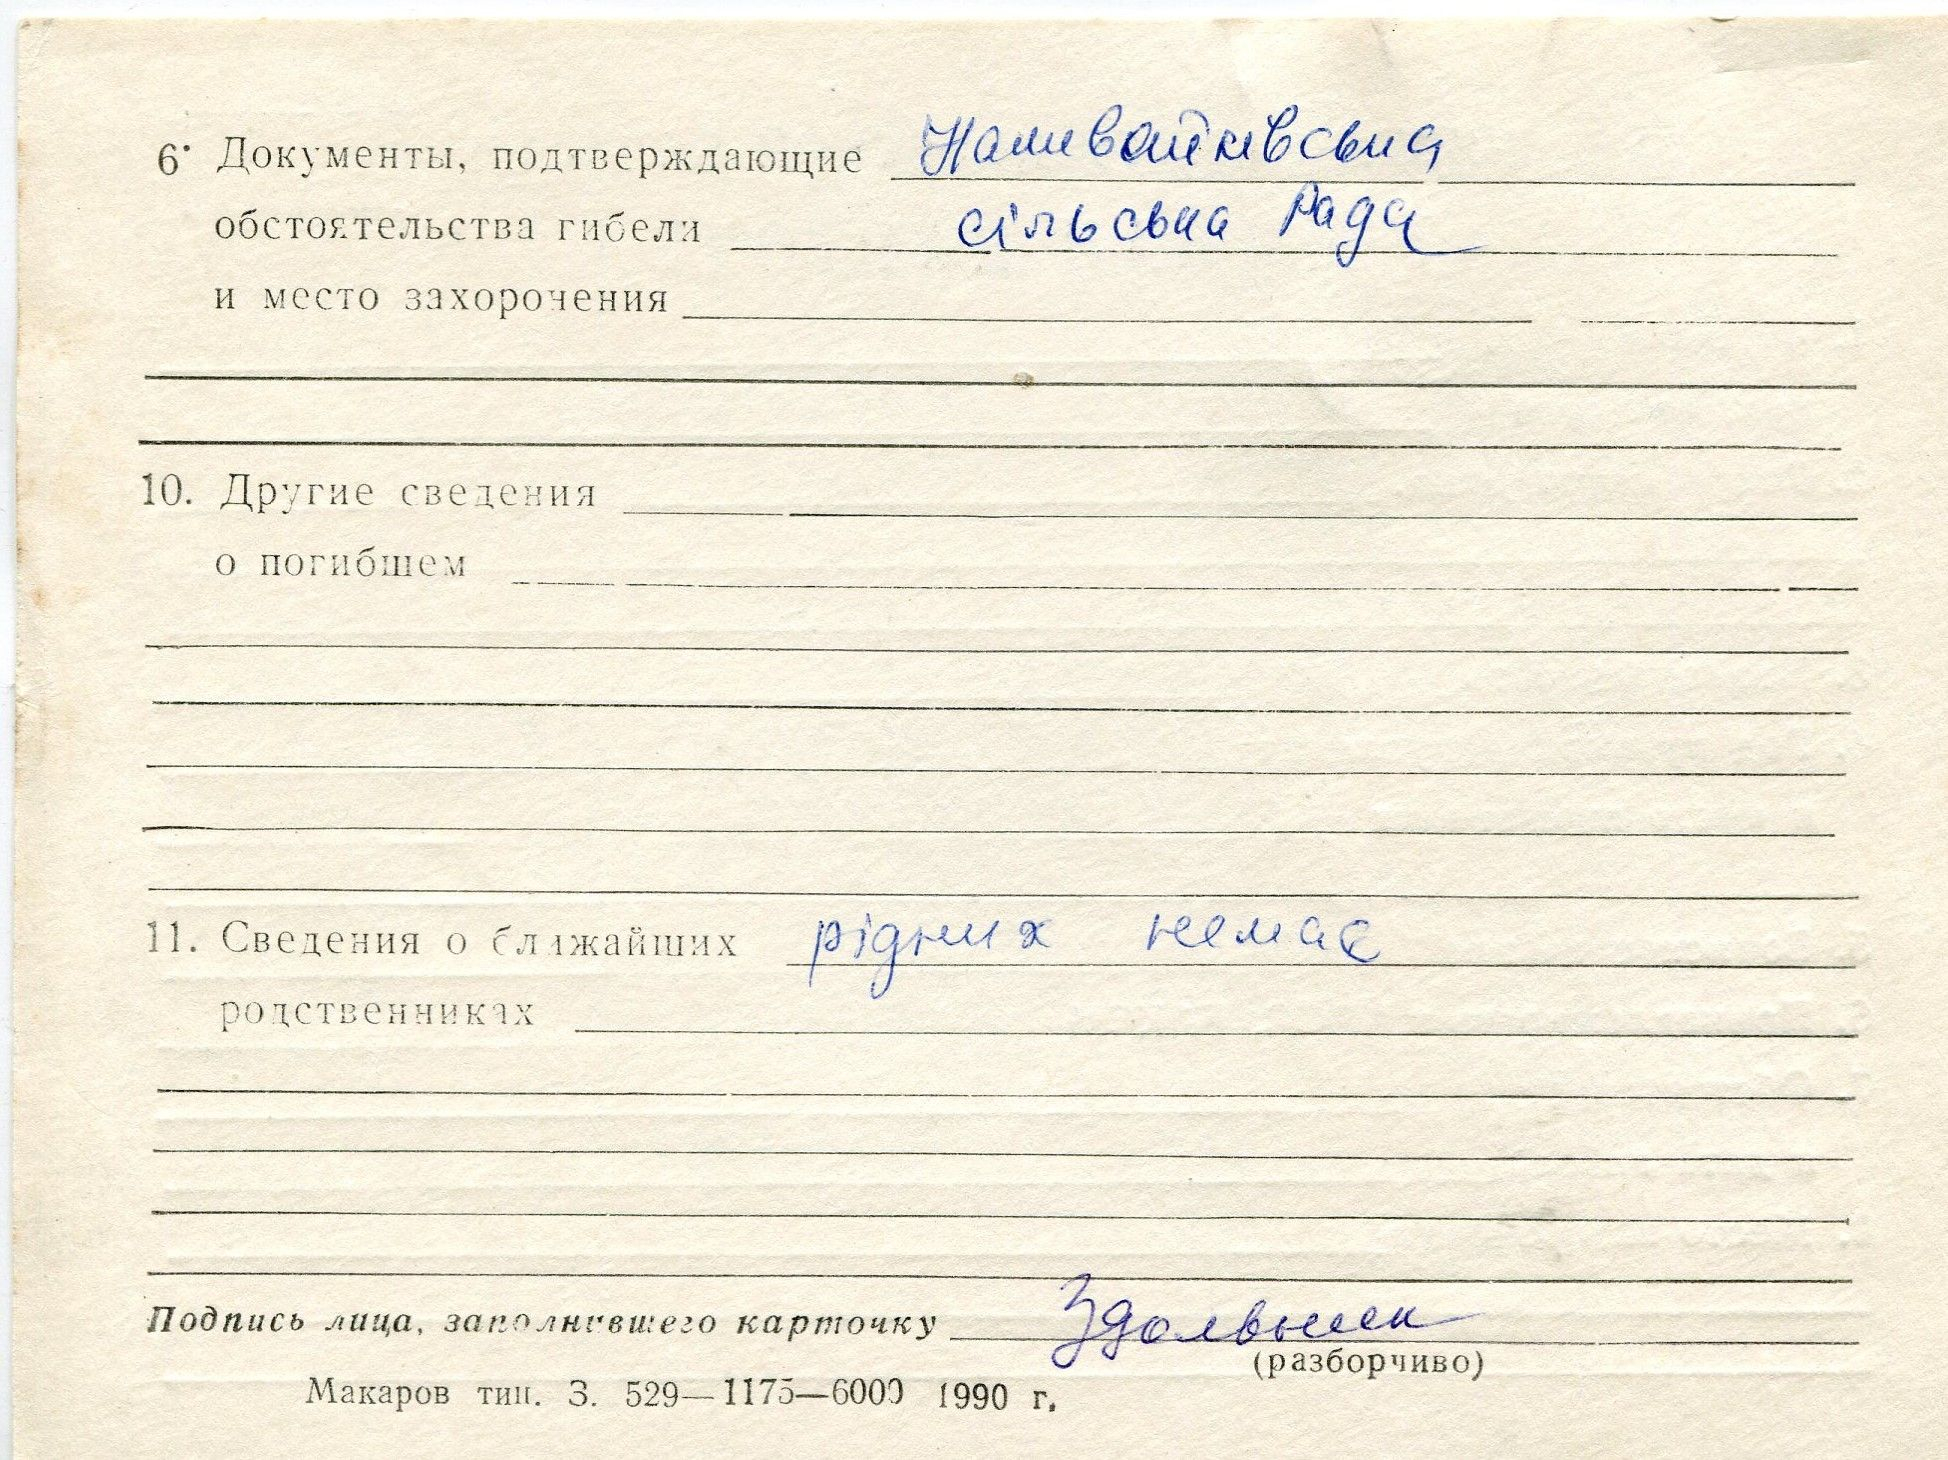 6. Документы, подтверждающие Наливайківська
обстоятельства гибели сільська Рада
и место захоронения
10. Другие сведения
о погибшем
11. Сведения о ближайших рідних немає
родственниках
Подпись лица, заполнившего карточку
(разборчиво)
Макаров тип. З. 529—1175—6000 1990 г.